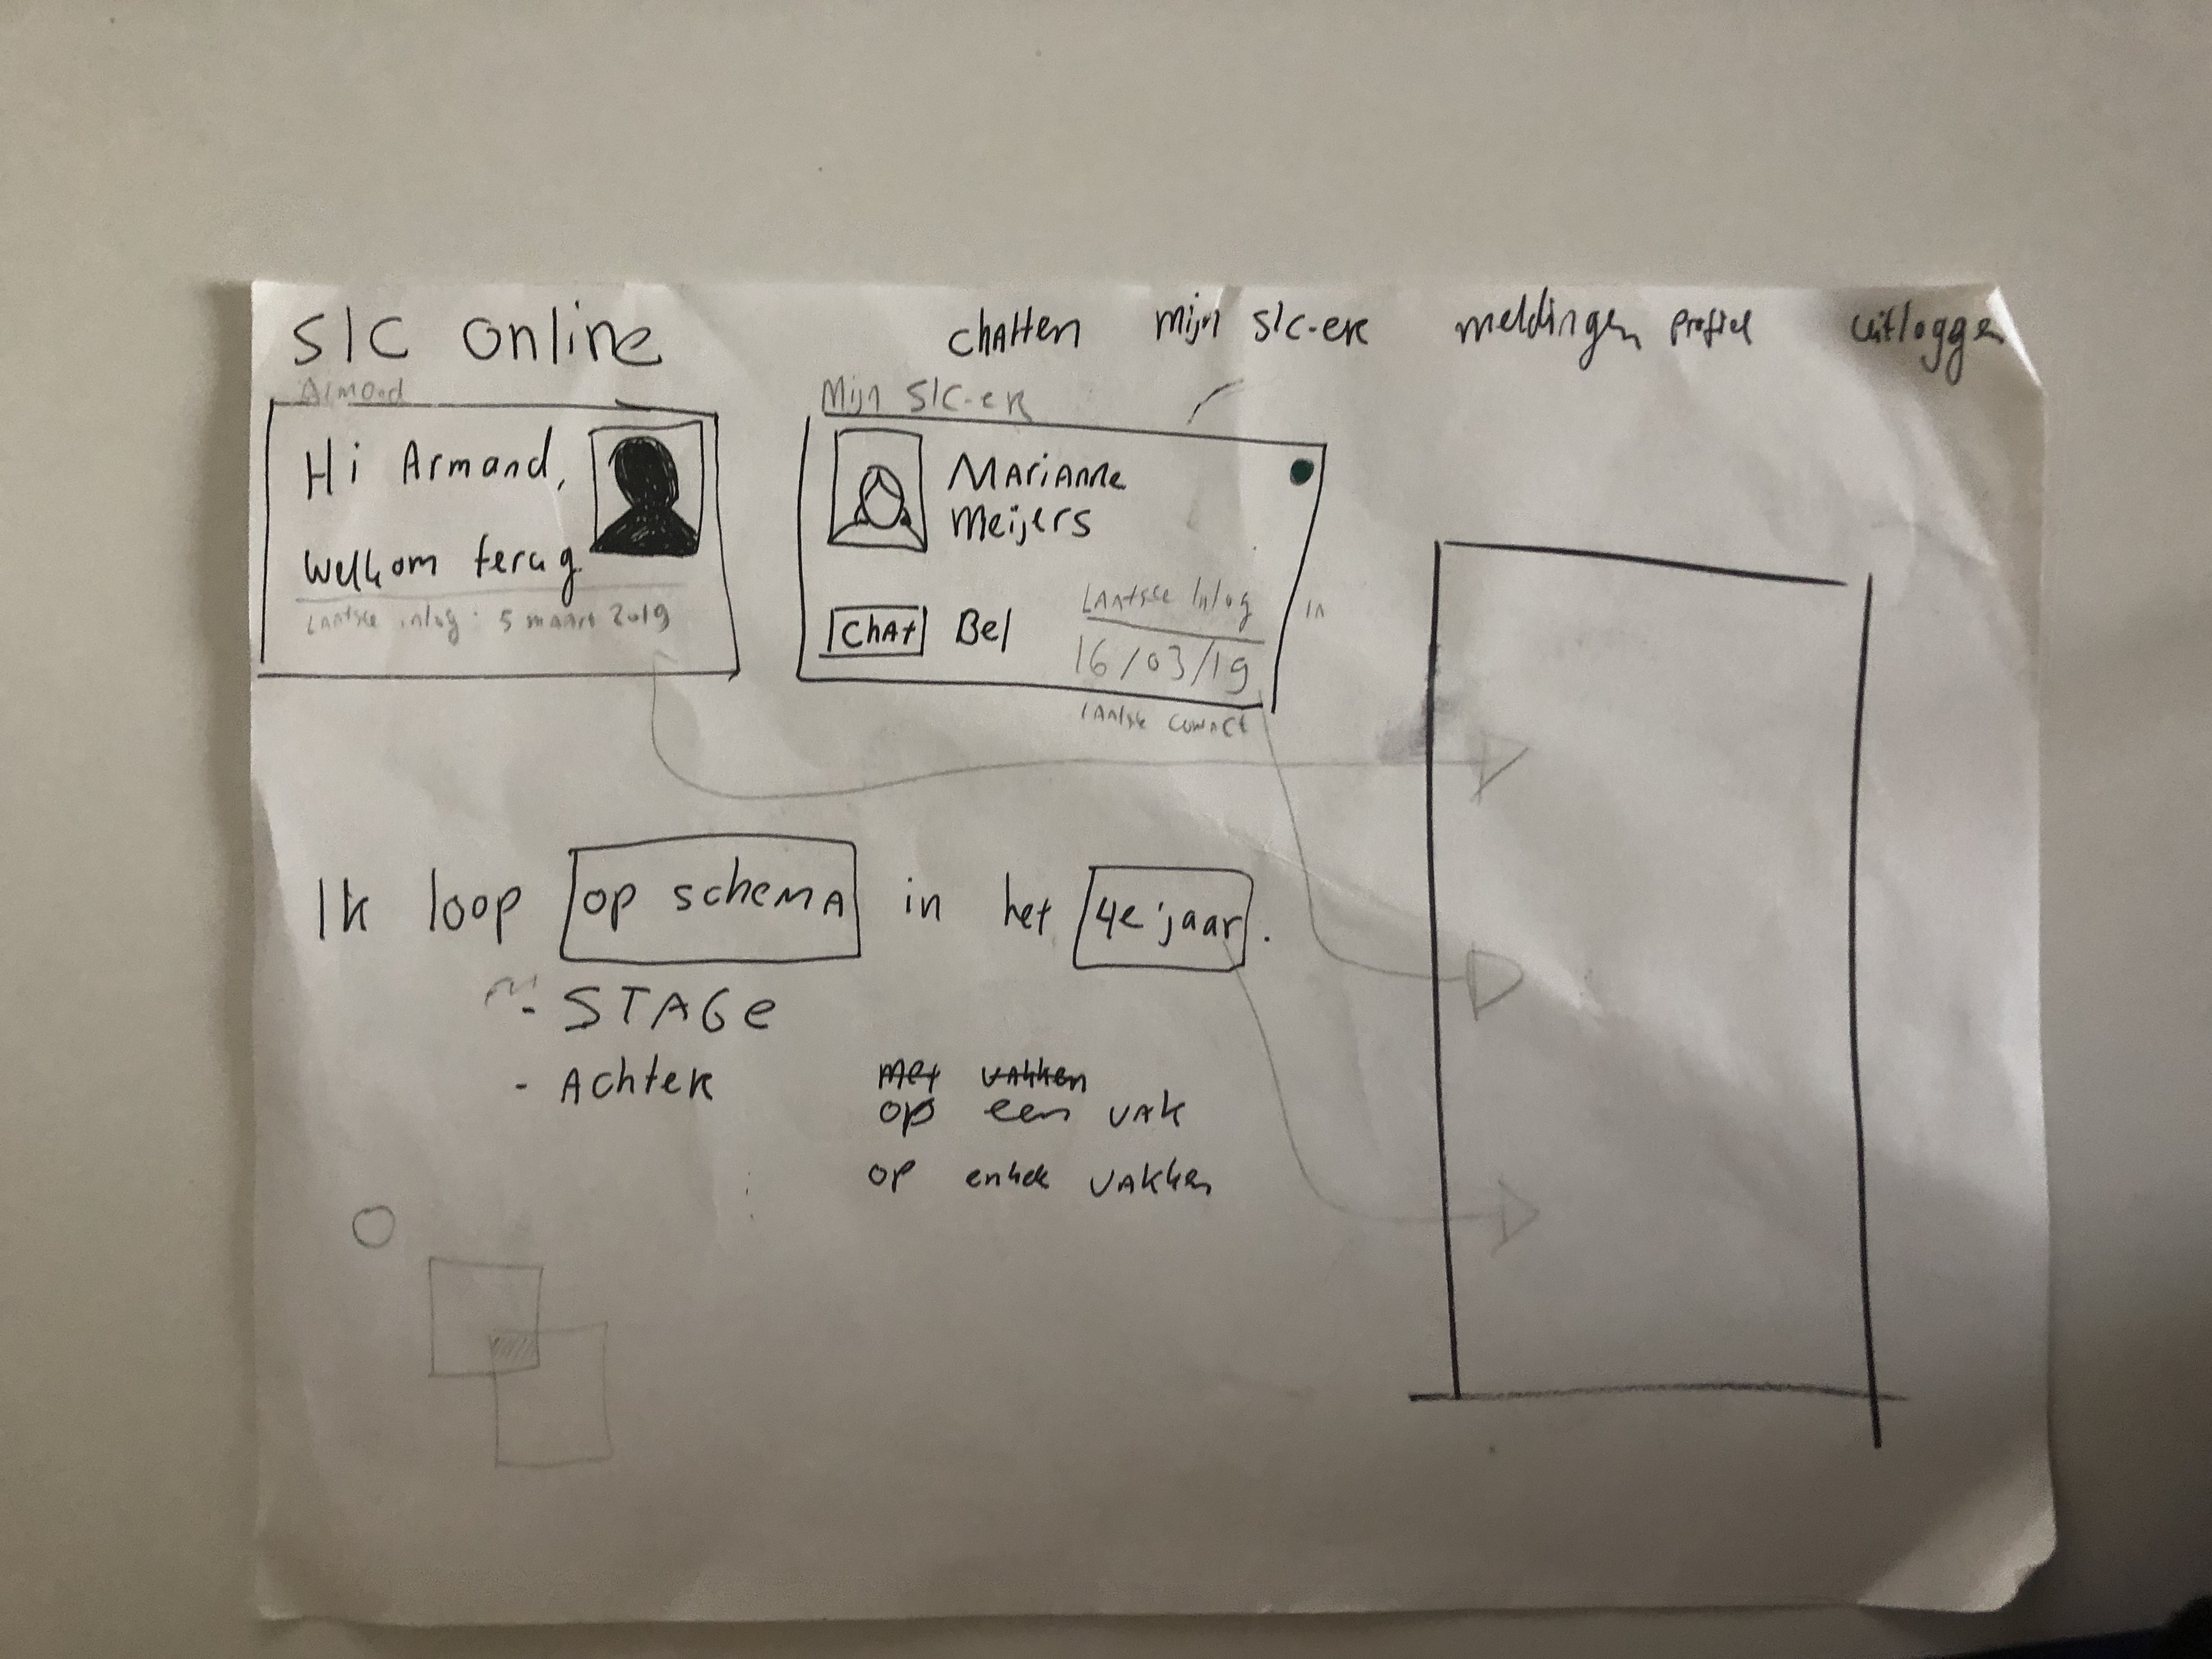 SLC online
chatten mijn SLC-er meldingen profiel uitloggen
Armand
Hi Armand,
welkom terug
Laatste inlog: 5 maart 2019
Mijn SLC-er
Marianne
Meijers
Chat Bel
Laatste inlog
16/03/19
laatste contact
in
Ik loop op schema in het 4e jaar.
- STAGe
- Achter
met vakken
op een vak
op enkele vakken